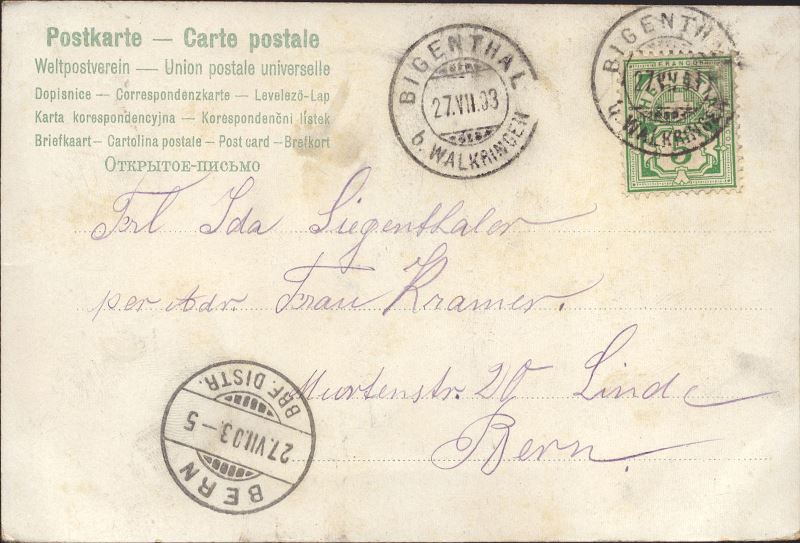 Postkarte — Carte postale
Weltpostverein — Union postale universelle
Dopisnice — Correspondenzkarte — Levelező-Lap
Karta korespondencyjna — Korespondenční lístek
Briefkaart — Cartolina postale — Post card — Brefkort
Открытое-письмо
BIGENTHAL
27.VII.03
b. WALKRINGEN
BIGENTHAL
27
b. WALKRINGEN
FRANCO
HELVETIA
5
Frl Ida Siegenthaler
per Adr. Frau Kramer.
Murtenstr. 20 Linde
Bern.
BERN
27.VII.03.—5
BRF. DISTR.